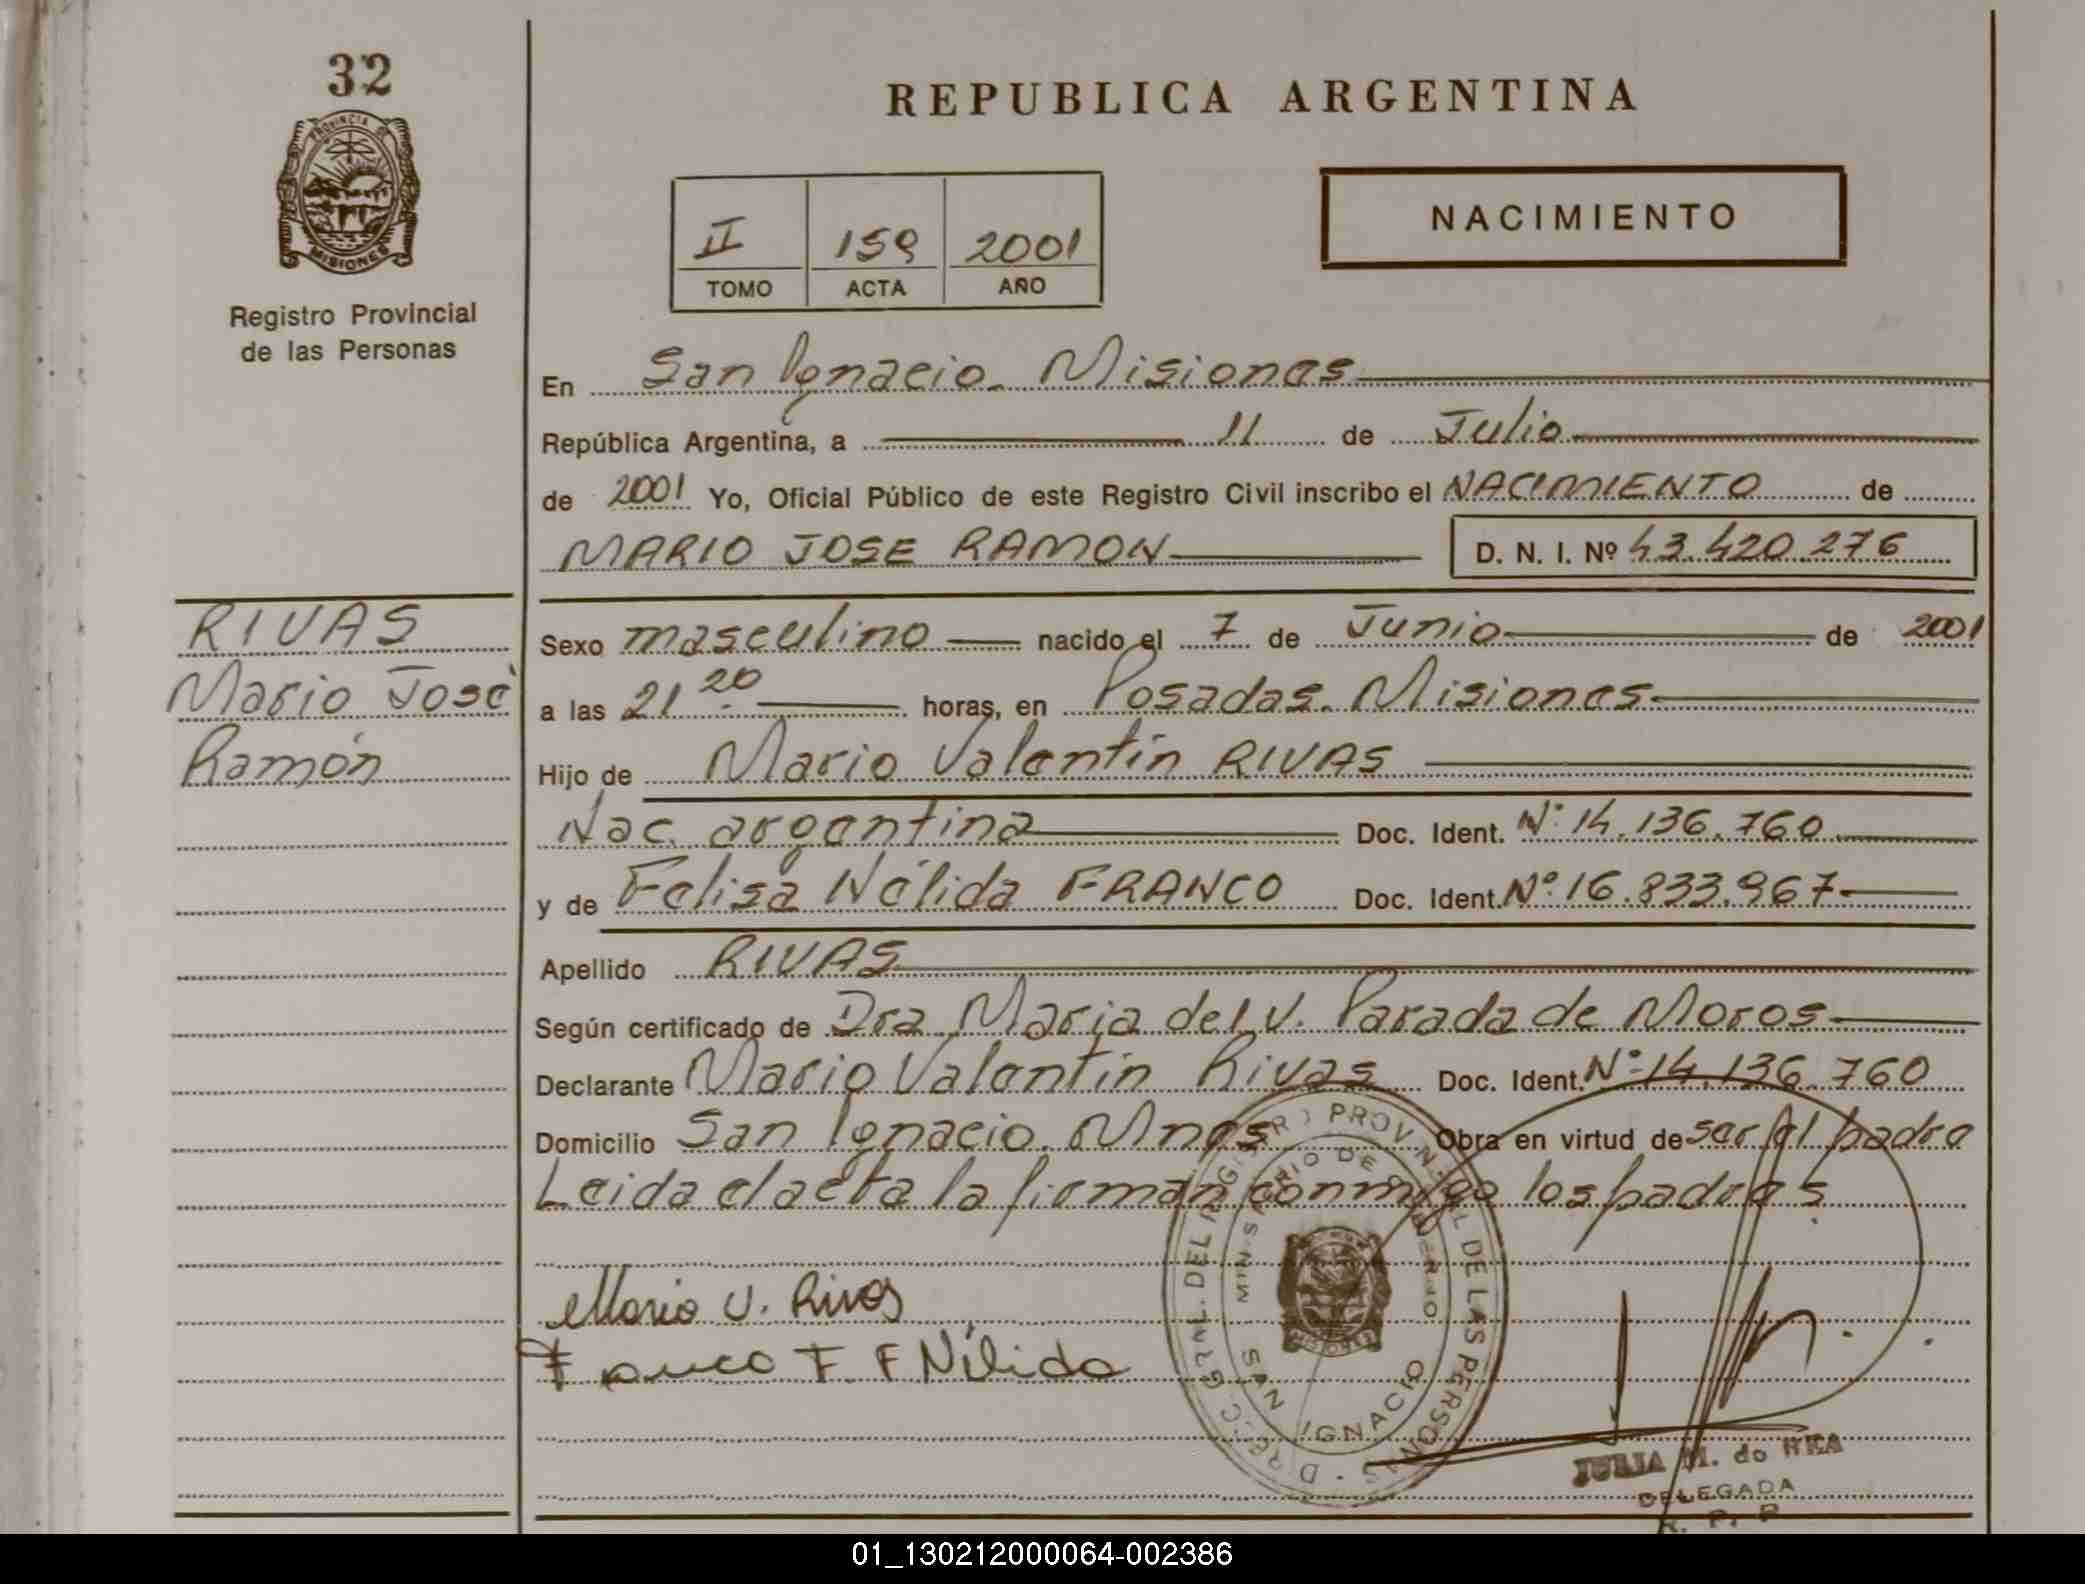 32
PROVINCIA DE
MISIONES
Registro Provincial
de las Personas
REPUBLICA ARGENTINA
NACIMIENTO
II 159 2001
TOMO ACTA AÑO
En San Ignacio. Misiones
República Argentina, a 11 de Julio
de 2001 Yo, Oficial Público de este Registro Civil inscribo el NACIMIENTO de
MARIO JOSE RAMON D. N. I. Nº 43.420.276
RIVAS
Mario José
Ramón
Sexo masculino nacido el 7 de Junio de 2001
a las 21.20 horas, en Posadas. Misiones
Hijo de Mario Valentín RIVAS
Nac. argentina Doc. Ident. Nº 14.136.760
y de Felisa Nélida FRANCO Doc. Ident. Nº 16.833.967
Apellido RIVAS
Según certificado de Dra Maria del V. Parada de Moros
Declarante Mario Valentín Rivas Doc. Ident. Nº 14.136.760
Domicilio San Ignacio. Mnes Obra en virtud de ser el padre
Leida el acta la firman conmigo los padres
Mario V. Rivas
Franco F. F Nélida
DIRECC. GRAL. DEL REGISTRO PROVINCIAL DE LAS PERSONAS
MINISTERIO DE GOBIERNO
SAN IGNACIO
JULIA M. do REA
DELEGADA
R. P. P
01_130212000064-002386